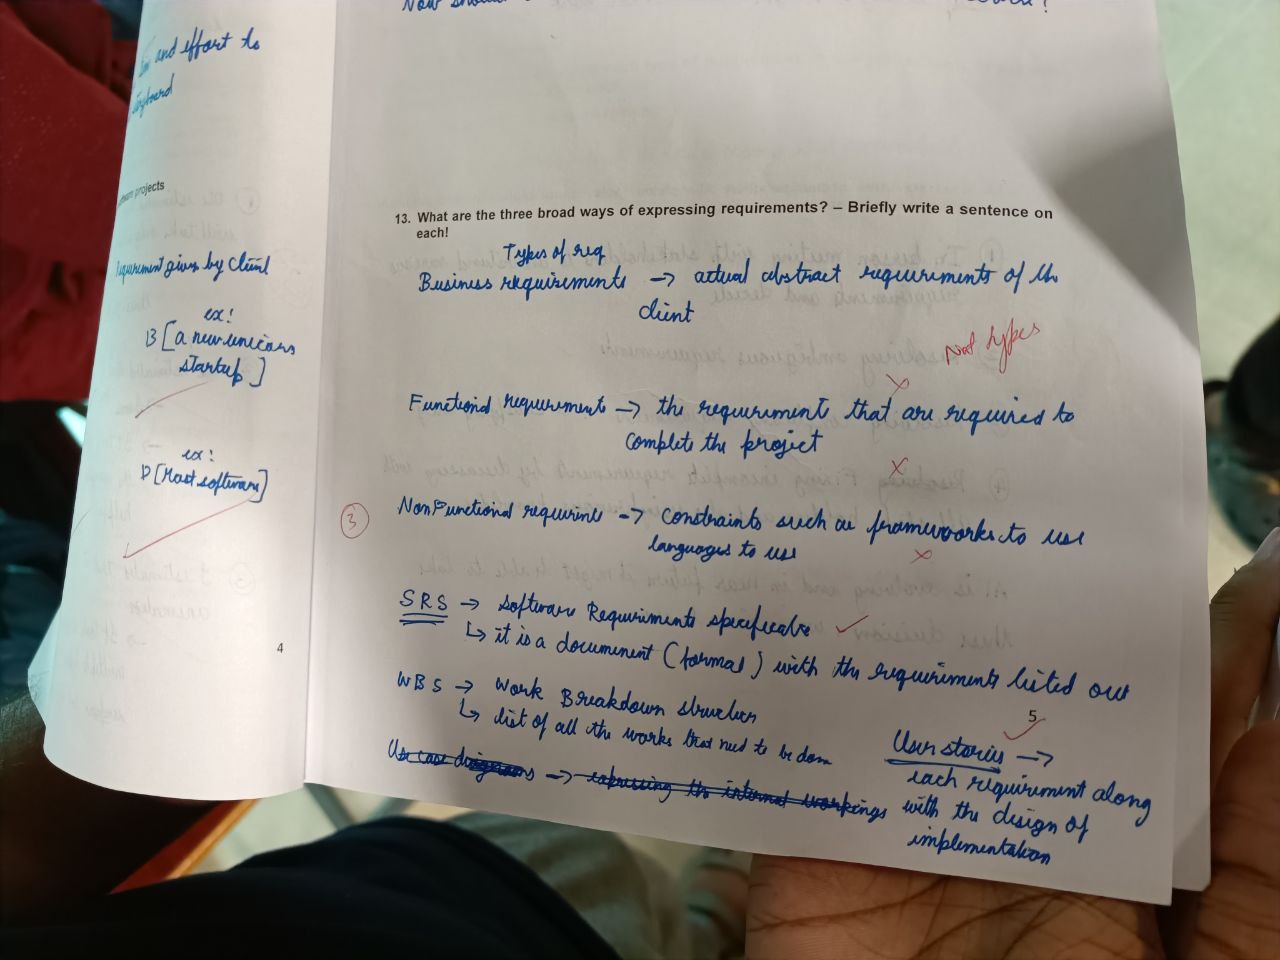 and effort to
projects
requirement given by client
ex:
B [a new unicorn
startup]
ex:
D [Most software]
4
13. What are the three broad ways of expressing requirements? – Briefly write a sentence on
each!
Types of req
Business requirements → actual abstract requirements of the
client
Not types
Functional requirements → the requirement that are required to
complete the project
3
Non Functional → constraints such as frameworks to use
languages to use
SRS → Software Requirements
↳ it is a document (formal) with the requirements listed out
WBS → Work Breakdown
↳ list of all the works that need to be done
5
User stories →
each requirement along
with the design of
implementation